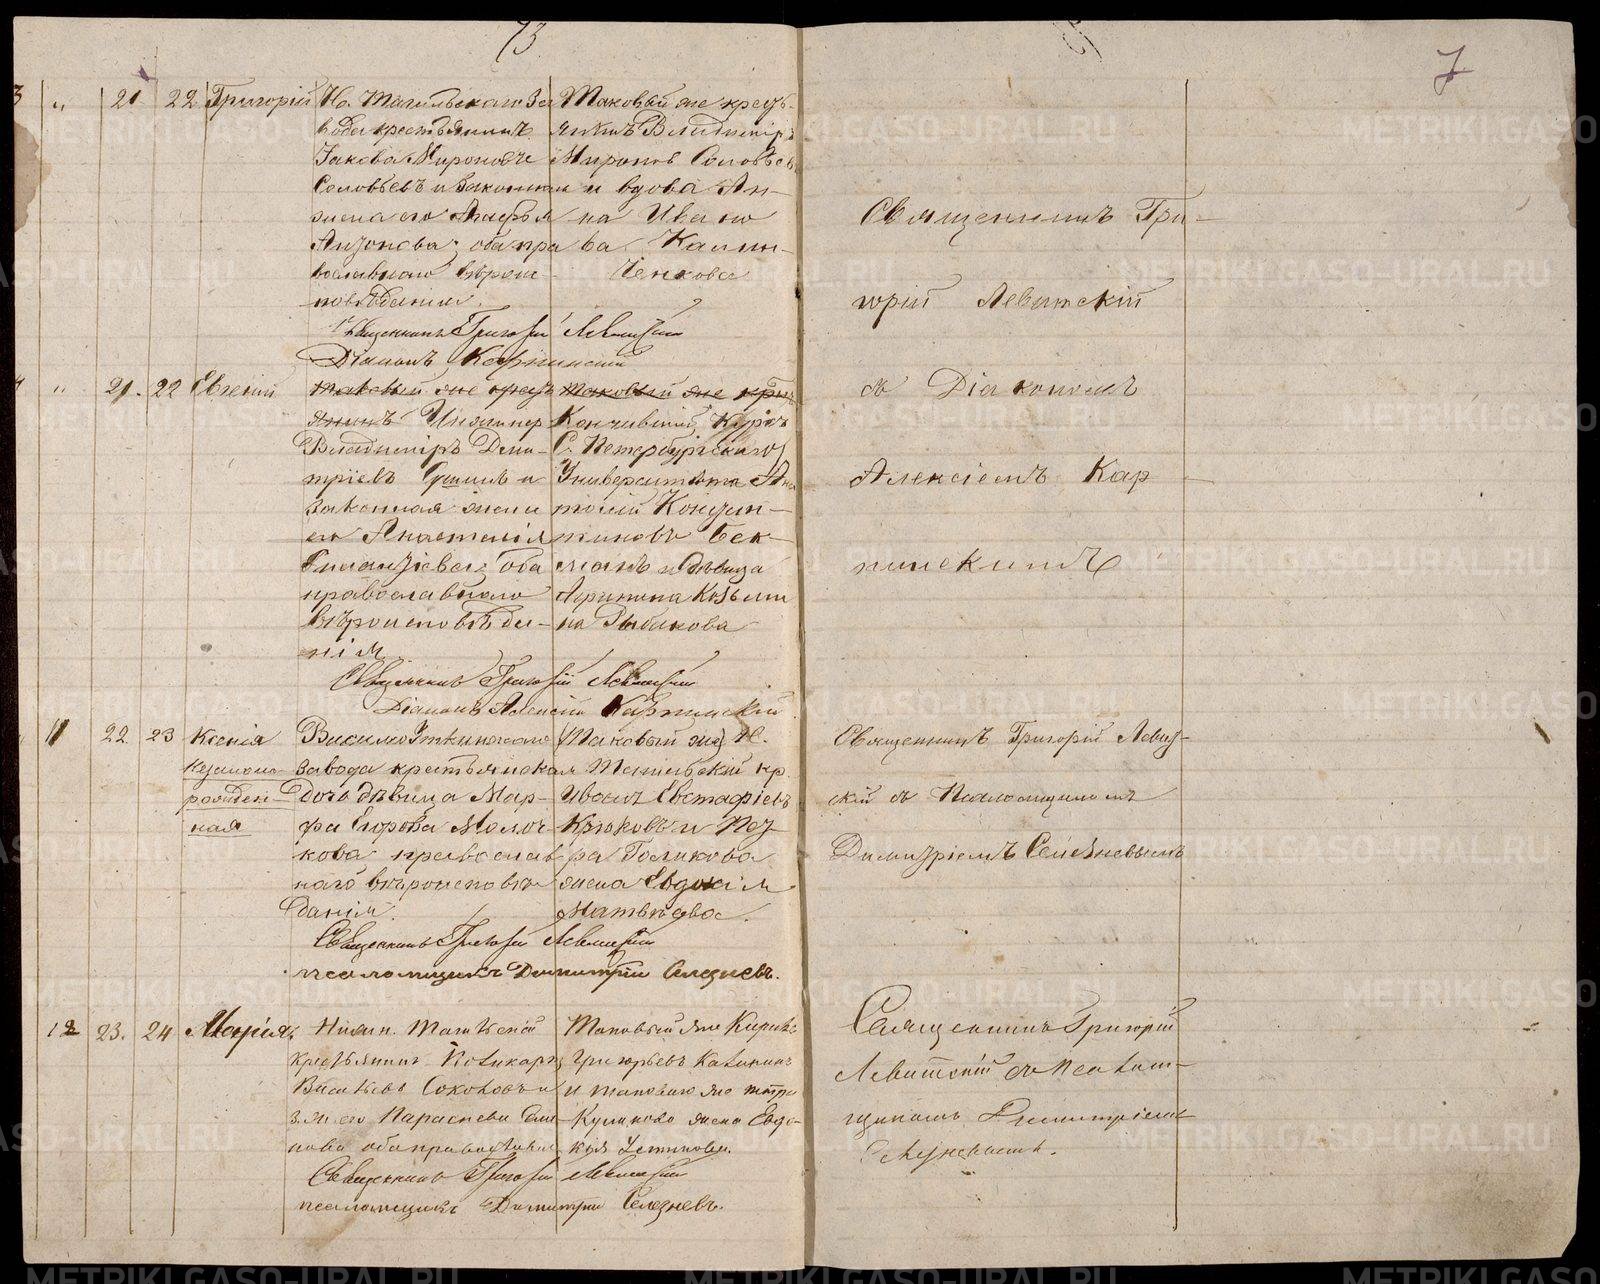 73
7
3 " 21 22 Григорій
Н. Тагильскаго За
вода крестьянинъ
Іаковъ Мироновъ
Соловьевъ и законная
жена его Агафья
Антонова; оба пра
вославнаго вѣрои
повѣданія.
Таковый же кресть-
янинъ Владиміръ
Мироновъ Соловьевъ
и вдова Ан-
на Ивано
ва Калин-
ченкова
Священникъ Григорій Левитскій
Діаконъ Карпинскій
Священникъ Гри-
горій Левитскій
съ Діакономъ
Алексіемъ Кар-
пинскимъ
4 " 21. 22 Евгеній
таковый же крест
янинъ Инженер
Владиміръ Дми-
тріевъ и
законная жена
его Анастасія
оба
православнаго
вѣроисповѣда-
нія
таковый же крест
Кончившій Курсъ
С. Петербургскаго
Университета Ана
толій Констан-
тиновъ Бек-
манъ и дѣвица
Козьми
на Рыбакова
Священникъ Григорій Левитскій
Діаконъ Алексій Карпинскій
11 22 23 Ксенія
незаконо-
рожден-
ная
Висимоуткинскаго
завода крестьянская
дочь дѣвица Мар-
фа Егорова Молоч-
кова православ
наго вѣроисповѣ
данія.
Таковый же Н.
Тагильскій кр.
Иванъ Евстафіевъ
Крюковъ и Пет-
ра Голикова
жена Евдокія
Матвѣева.
Священникъ Григорій Левитскій
псаломщикъ Димитрій Селезневъ.
Священникъ Григорій Левит-
скій съ Псаломщикомъ
Димитріемъ Селезневымъ
12 23. 24 Марія
Нижн. Тагильскій
крестьянинъ Поликарпъ
Васильевъ Соколовъ и
з. ж. его Параскева
нова оба православные
Таковый же Кирикъ
Григорьевъ Калининъ
и таковаго же Петра
Куликова жена Евдо-
кія Устинова.
Священникъ Григорій Левитскій
псаломщикъ Димитрій Селезневъ.
Священникъ Григорій
Левитскій съ Псалом-
щикомъ Димитріемъ
Селезневымъ.
METRIKI.GASO-URAL.RU